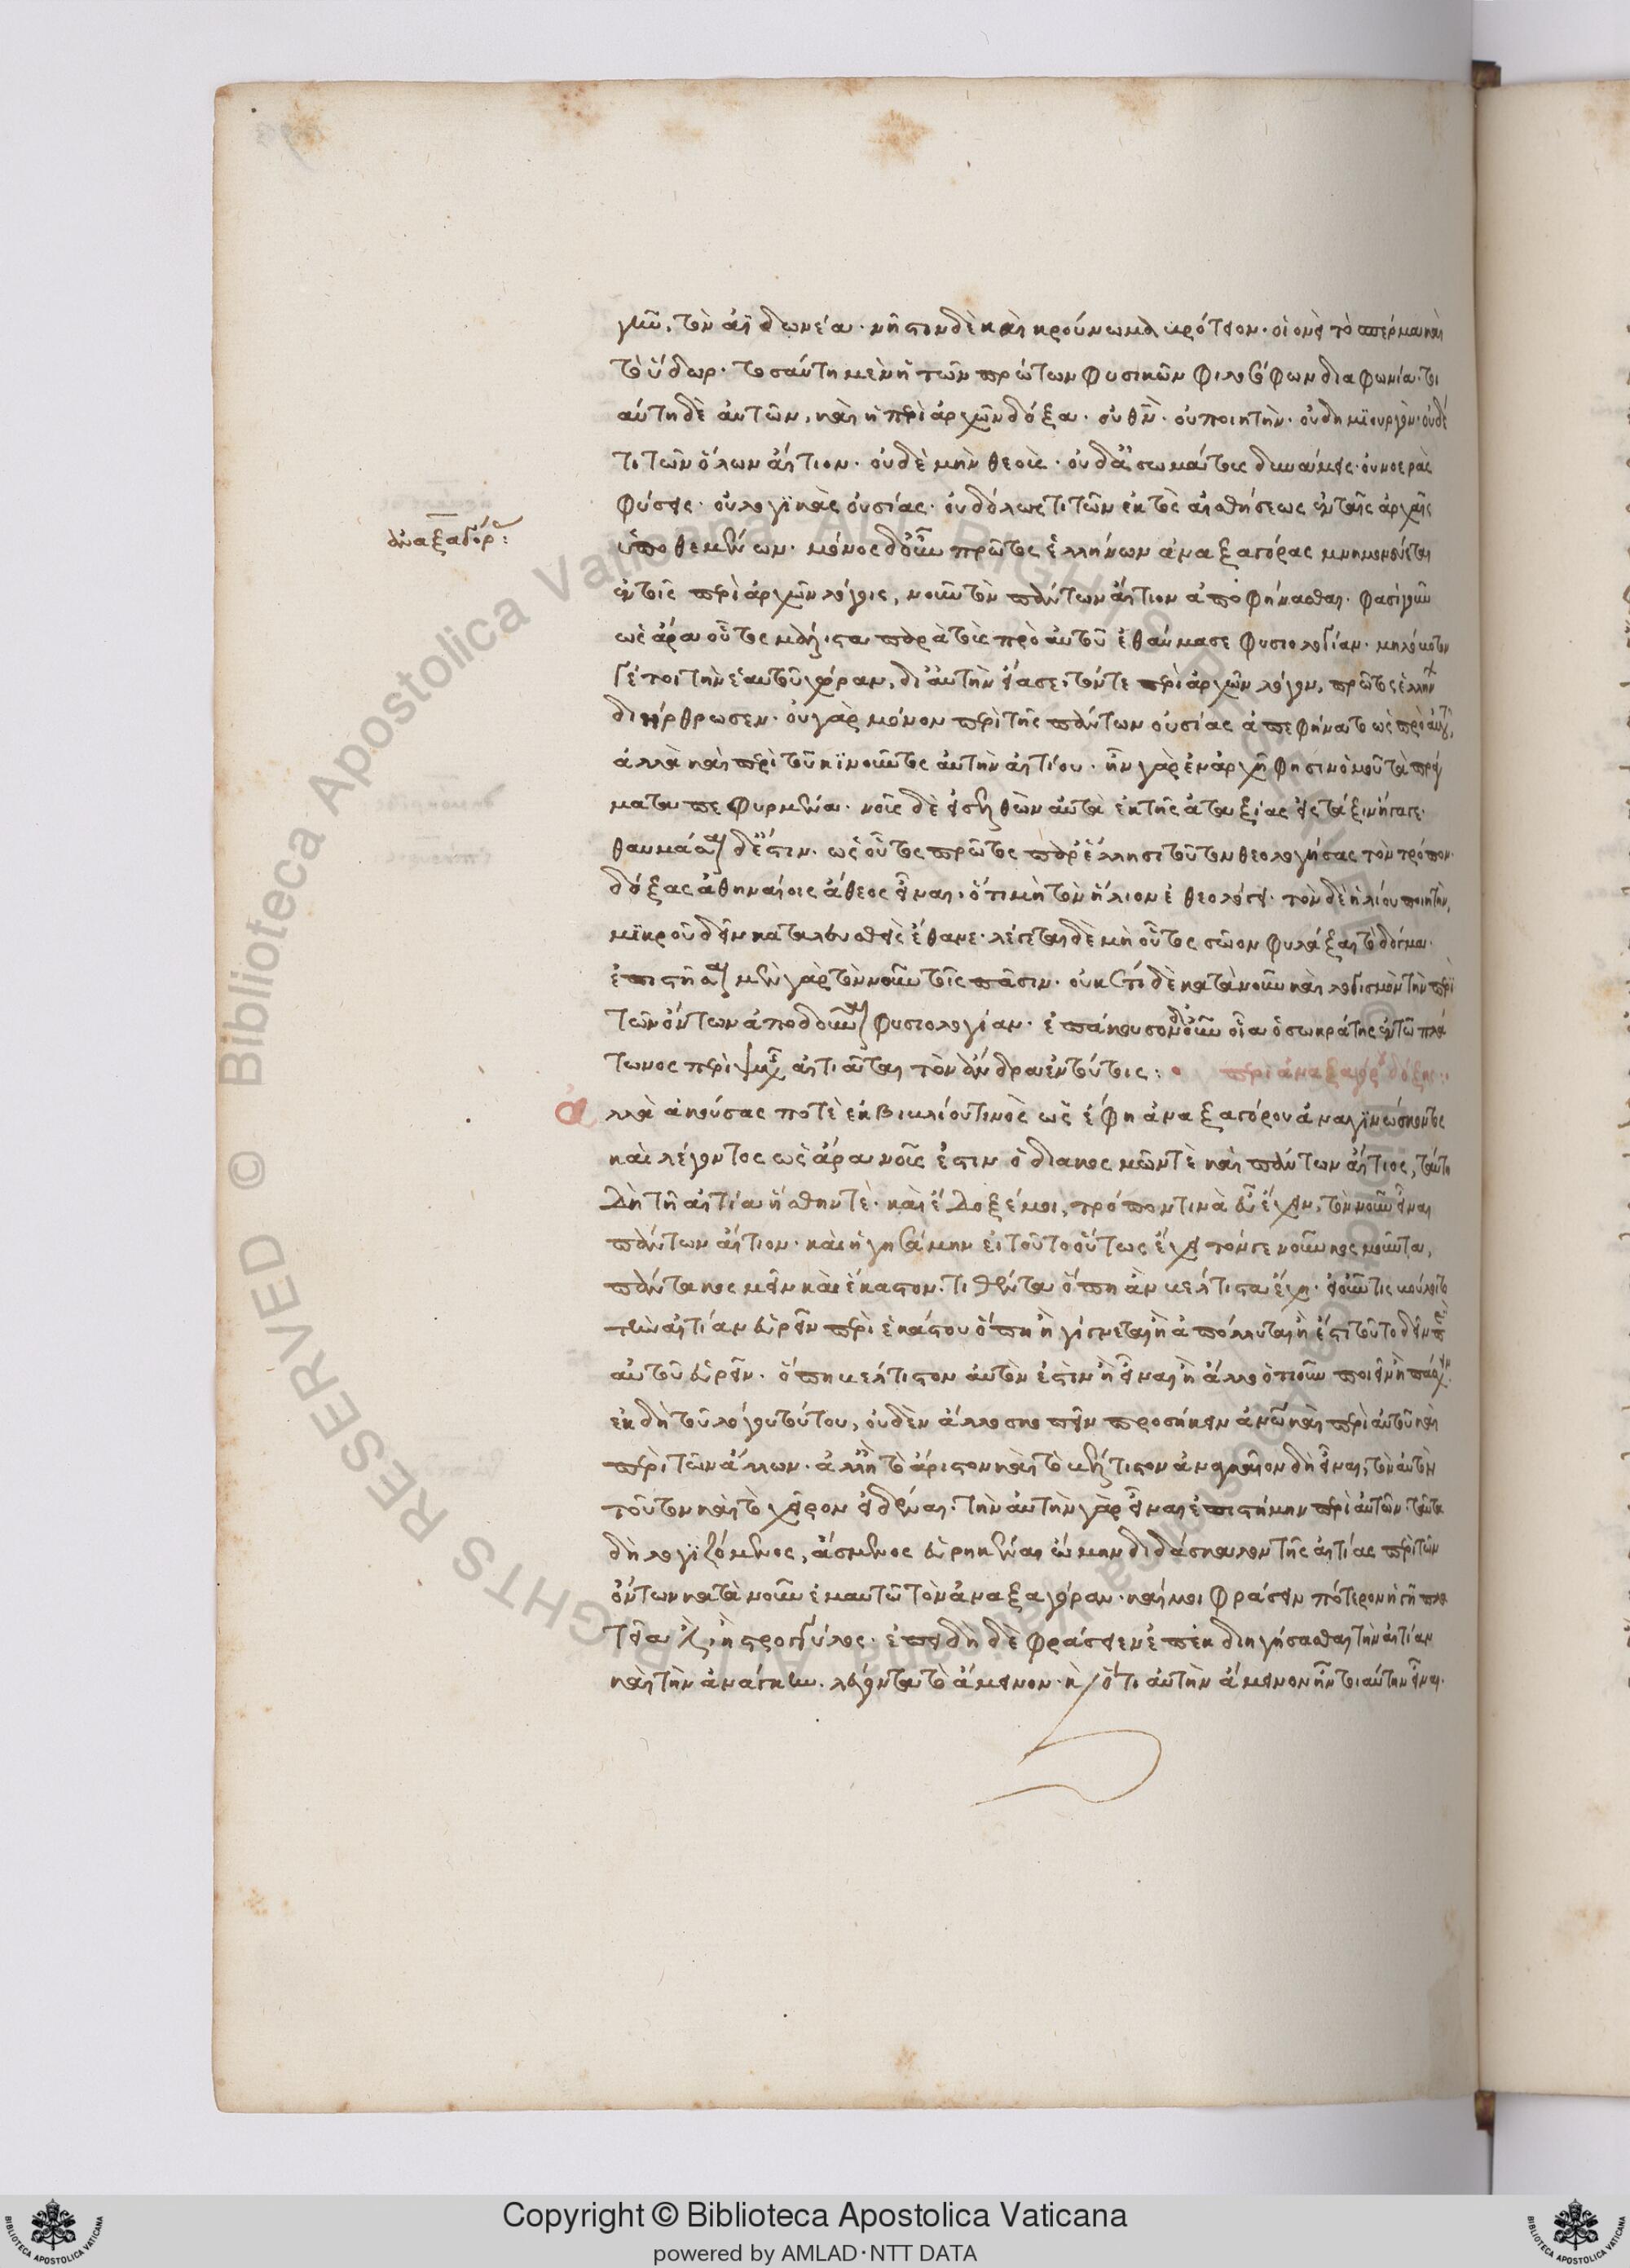 γῆν, τὸν ἀϊδωνέα· νῆστιν δὲ καὶ κρούνωμα βρότειον· οἱονεὶ τὸ σπέρμα καὶ
τὸ ὕδωρ· τοσαύτη μὲν ἡ τῶν πρώτων φυσικῶν φιλοσόφων διαφωνία· τοι
αύτη δὲ αὐτῶν, καὶ ἡ περὶ ἀρχῶν δόξα· οὐ θεὸν· οὐ ποιητὴν· οὐ δημϊουργὸν· οὐδέ
τι τῶν ὅλων αἴτιον· οὐδὲ μὴν θεοὺς· οὐδ' ἀσωμάτους δυνάμεις· οὐ νοερὰς
φύσεις· οὐ λογϊκὰς οὐσίας· οὐδ' ὅλως τι τῶν ἐκτὸς αἰσθήσεως ἐν ταῖς ἀρχαῖς
ὑποθεμένων· μόνος δ' οὖν πρῶτος ἑλλήνων ἀναξαγόρας μνημονεύεται
ἀναξαγόρ:
ἐν τοῖς περὶ ἀρχῶν λόγοις, νοῦν τὸν πάντων αἴτιον ἀποφήνασθαι· φασὶ γοῦν
ὡς ἄρα οὗτος μάλιστα παρὰ τοὺς πρὸ αὐτοῦ ἐθαύμασε φυσιολογίαν· μηλόβοτον
γέ τοι τὴν ἑαυτοῦ χώραν, δι' αὐτὴν εἴασε· τόν τε περὶ ἀρχῶν λόγον, πρῶτος ἑλλήν
διήρθρωσεν· οὐ γὰρ μόνον περὶ τῆς πάντων οὐσίας ἀπεφήνατο ὡς οἱ πρὸ αὐτοῦ,
ἀλλὰ καὶ περὶ τοῦ κϊνοῦντος αὐτὴν αἰτίου· ἦν γὰρ ἐν ἀρχῇ φησιν ὁμοῦ τὰ πράγ
ματα πεφυρμένα· νοῦς δὲ εἰσελθὼν αὐτὰ ἐκ τῆς ἀταξίας εἰς τάξιν ἤγαγε·
θαυμάσαι δ' ἔστιν· ὡς οὗτος πρῶτος παρ' ἕλλησι τοῦτον θεολογήσας τὸν τρόπον·
δόξας ἀθηναίοις ἄθεος εἶναι· ὅτι μὴ τὸν ἥλιον ἐθεολόγει· τὸν δὲ ἡλίου ποιητὴν,
μϊκροῦ δεῖν καταλευσθεὶς ἔθανε· λέγεται δὲ μὴ οὗτος σῶον φυλάξαι τὸ δόγμα·
ἐπιστῆσαι μὲν γὰρ τὸν νοῦν τοῖς πᾶσιν· οὐκ ἔτι δὲ κατὰ νοῦν καὶ λογισμὸν τὴν περὶ
τῶν ὄντων ἀποδοῦναι φυσιολογίαν· ἐπάκουσον δ' οὖν οἷα ὁ σωκράτης ἐν τῷ πλά
τωνος περὶ ψυχῆς αἰτιᾶται τὸν ἄνδρα ἐν τούτοις: • περὶ ἀναξαγόρου δόξης:
ἀλλὰ ἀκούσας ποτὲ ἐκ βιβλίου τινὸς ὡς ἔφη ἀναξαγόρου ἀναγϊνώσκοντος
καὶ λέγοντος ὡς ἄρα νοῦς ἐστιν ὁ διακοσμῶν τὲ καὶ πάντων αἴτιος, ταύτῃ
δὴ τῇ αἰτίᾳ ἥσθην τὲ· καὶ ἔδοξέ μοι, τρόπον τινὰ εὖ ἔχειν, τὸν νοῦν εἶναι
πάντων αἴτιον· καὶ ἡγησάμην εἰ τοῦτο οὕτως ἔχει τόν γε νοῦν κοσμοῦντα,
πάντα κοσμεῖν καὶ ἕκαστον· τιθέντα ὅπῃ ἂν βέλτιστα ἔχῃ· εἰ οὖν τις βούλοιτο
τὴν αἰτίαν εὑρεῖν περὶ ἑκάστου ὅπῃ ἢ γίγνεται ἢ ἀπόλλυται ἢ ἔστι τοῦτο δεῖν περὶ
αὐτοῦ εὑρεῖν· ὅπῃ βέλτιστον αὐτὸν ἐστὶν ἢ εἶναι ἢ ἄλλο ὁτιοῦν ποιεῖν ἢ πάσχειν·
ἐκ δὴ τοῦ λόγου τούτου, οὐδὲν ἄλλο σκοπεῖν προσήκειν ἀνῶ καὶ περὶ αὐτοῦ καὶ
περὶ τῶν ἄλλων· ἀλλ' ἢ τὸ ἄριστον καὶ τὸ βέλτιστον ἀναγκαῖον δὴ εἶναι, τὸν αὐτὸν
τοῦτον καὶ τὸ χεῖρον εἰδέναι· τὴν αὐτὴν γὰρ εἶναι ἐπιστήμην περὶ αὐτῶν· ταῦτα
δὴ λογϊζόμενος, ἄσμενος εὑρηκέναι ᾤμην διδάσκαλον τῆς αἰτίας περὶ τῶν
ὄντων κατὰ νοῦν ἐμαυτῷ τὸν ἀναξαγόραν· καί μοι φράσειν πότερον ἡ γῆ πλα
τεῖά ἐστιν ἢ στρογγύλος· ἐπειδὴ δὲ φράσειεν ἐπεκδιηγήσασθαι τὴν αἰτίαν
καὶ τὴν ἀνάγκην· λέγοντα τὸ ἄμεινον· καὶ ὅτι αὐτὴν ἄμεινον ἦν τοιαύτην εἶναι·